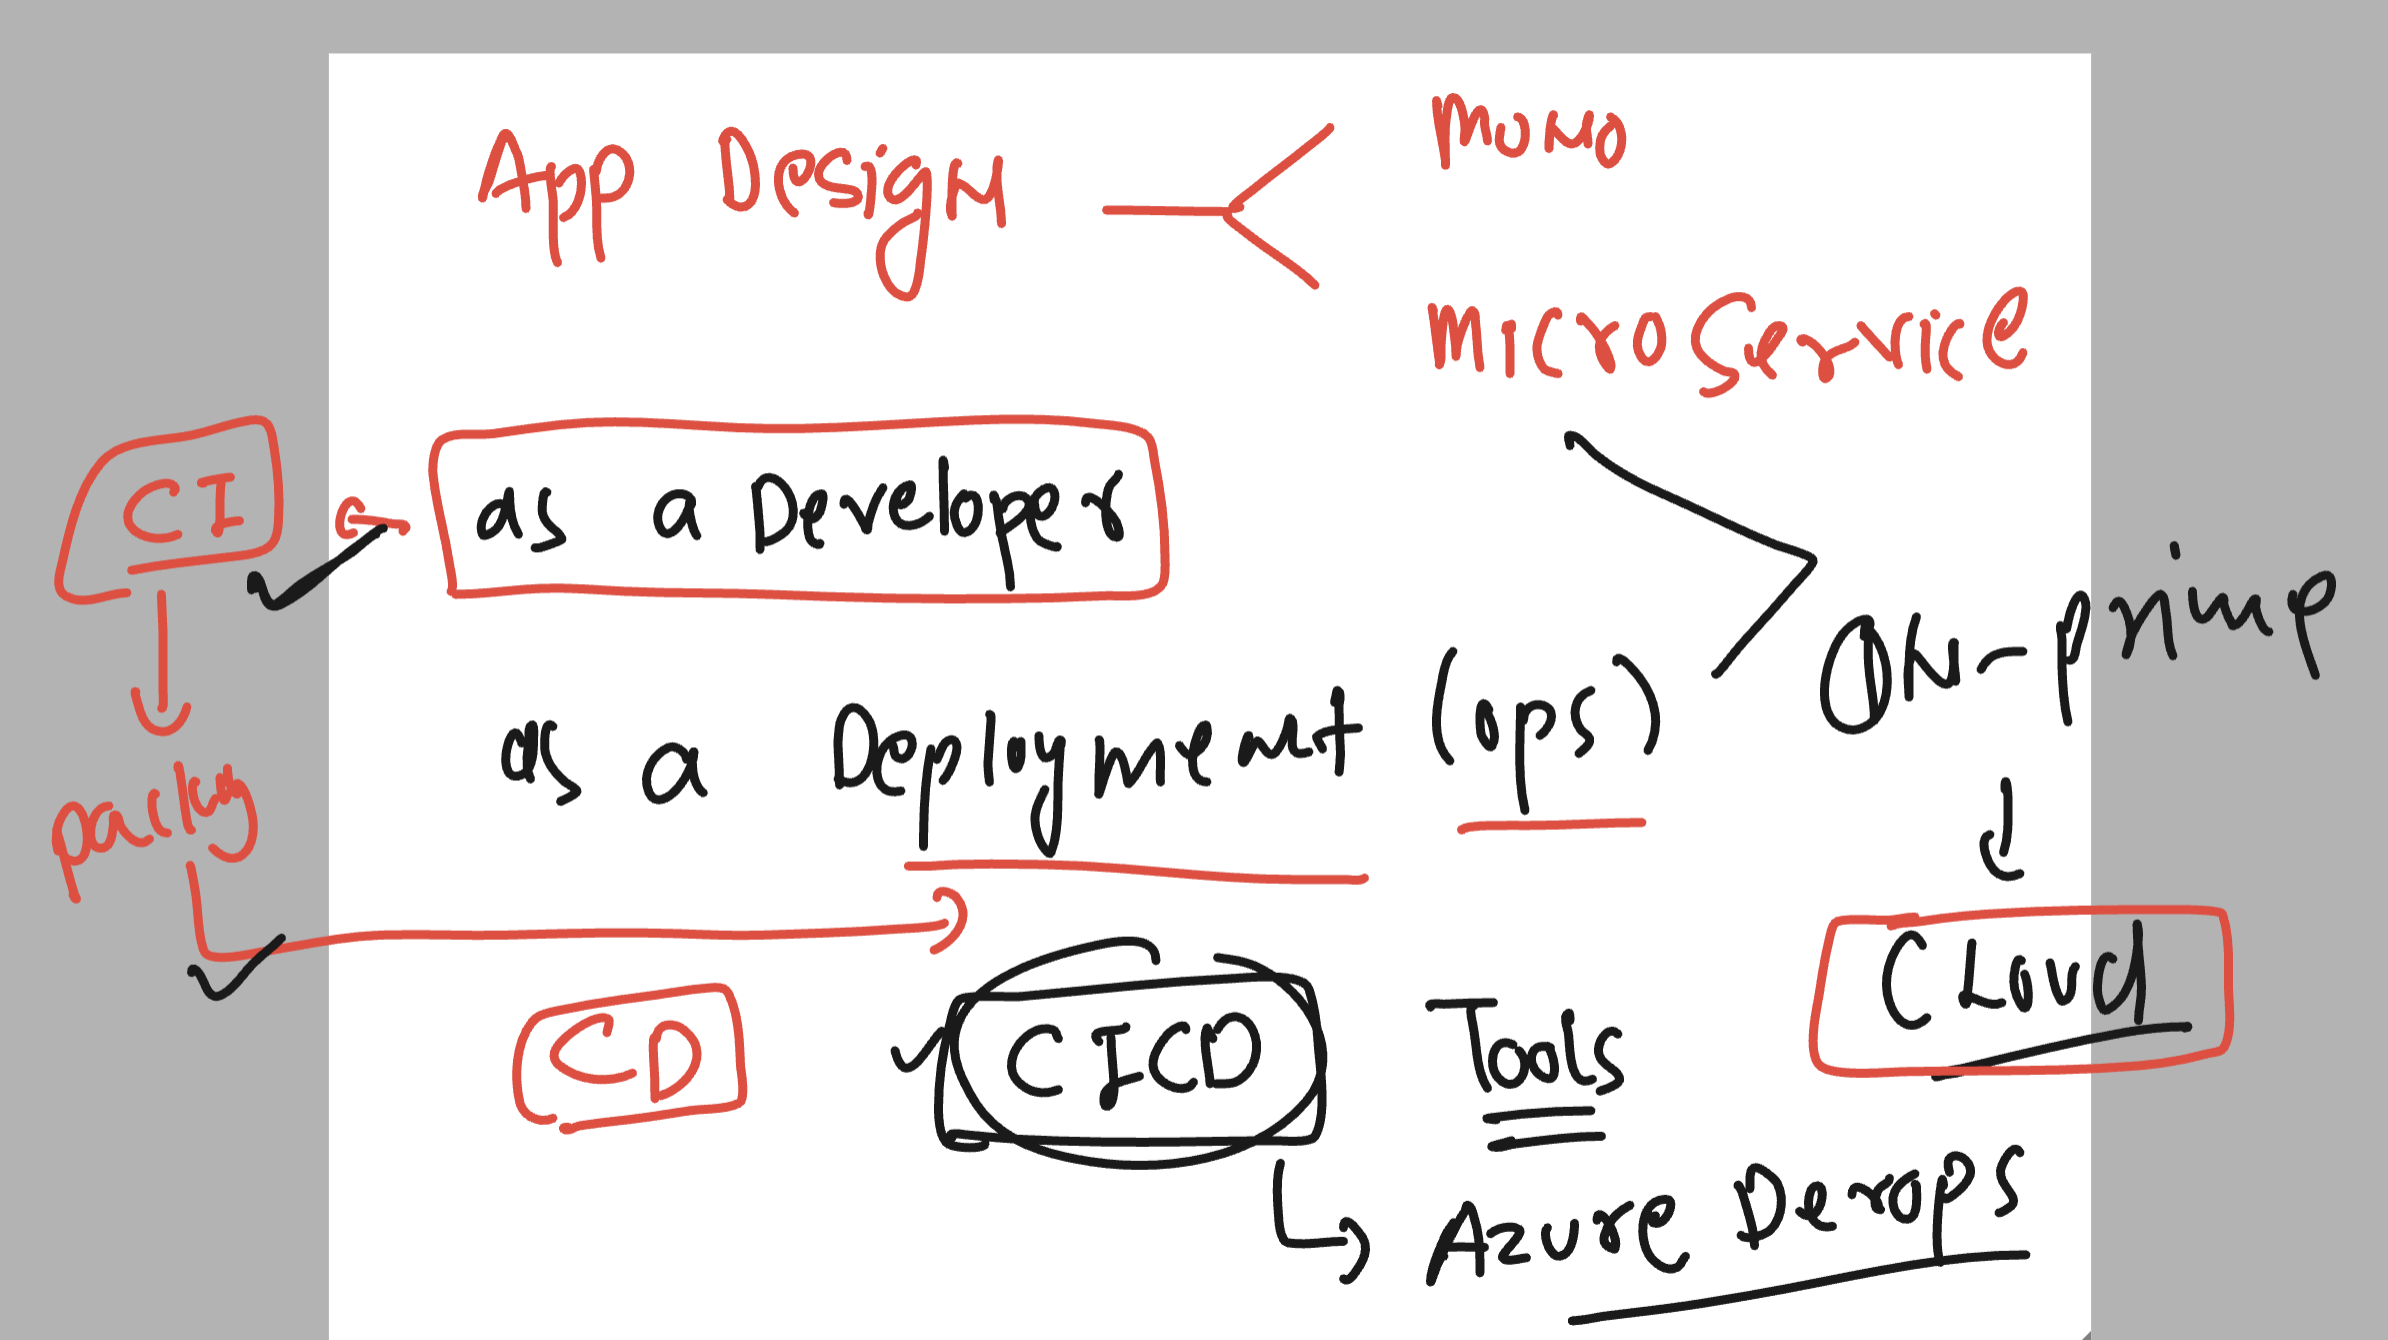 App Design
Mono
MicroService
CI
as a Developer
as a Deployment (ops)
ON-Primp
CD
CICD
Tools
Cloud
Azure Devops